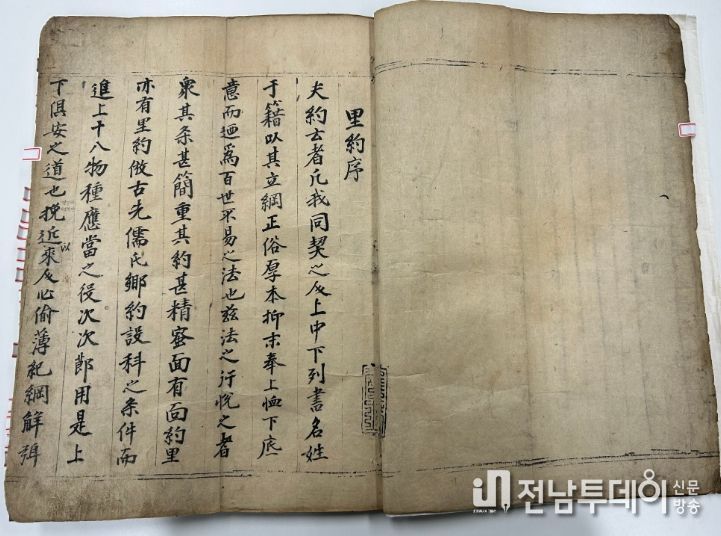 里約序
夫約云者凡我同契之人上中下列書名姓
于籍以其立綱正俗厚本抑末奉上恤下底
意而迺爲百世不易之法也玆法之行悅之者
衆其条甚簡重其約甚精密面有面約里
亦有里約倣古先儒氏鄉約設科之条件而
進上十八物種應當之役次次節用是上
下俱安之道也挽近以來人心偷薄紀綱解弛
전남투데이 신문
방송